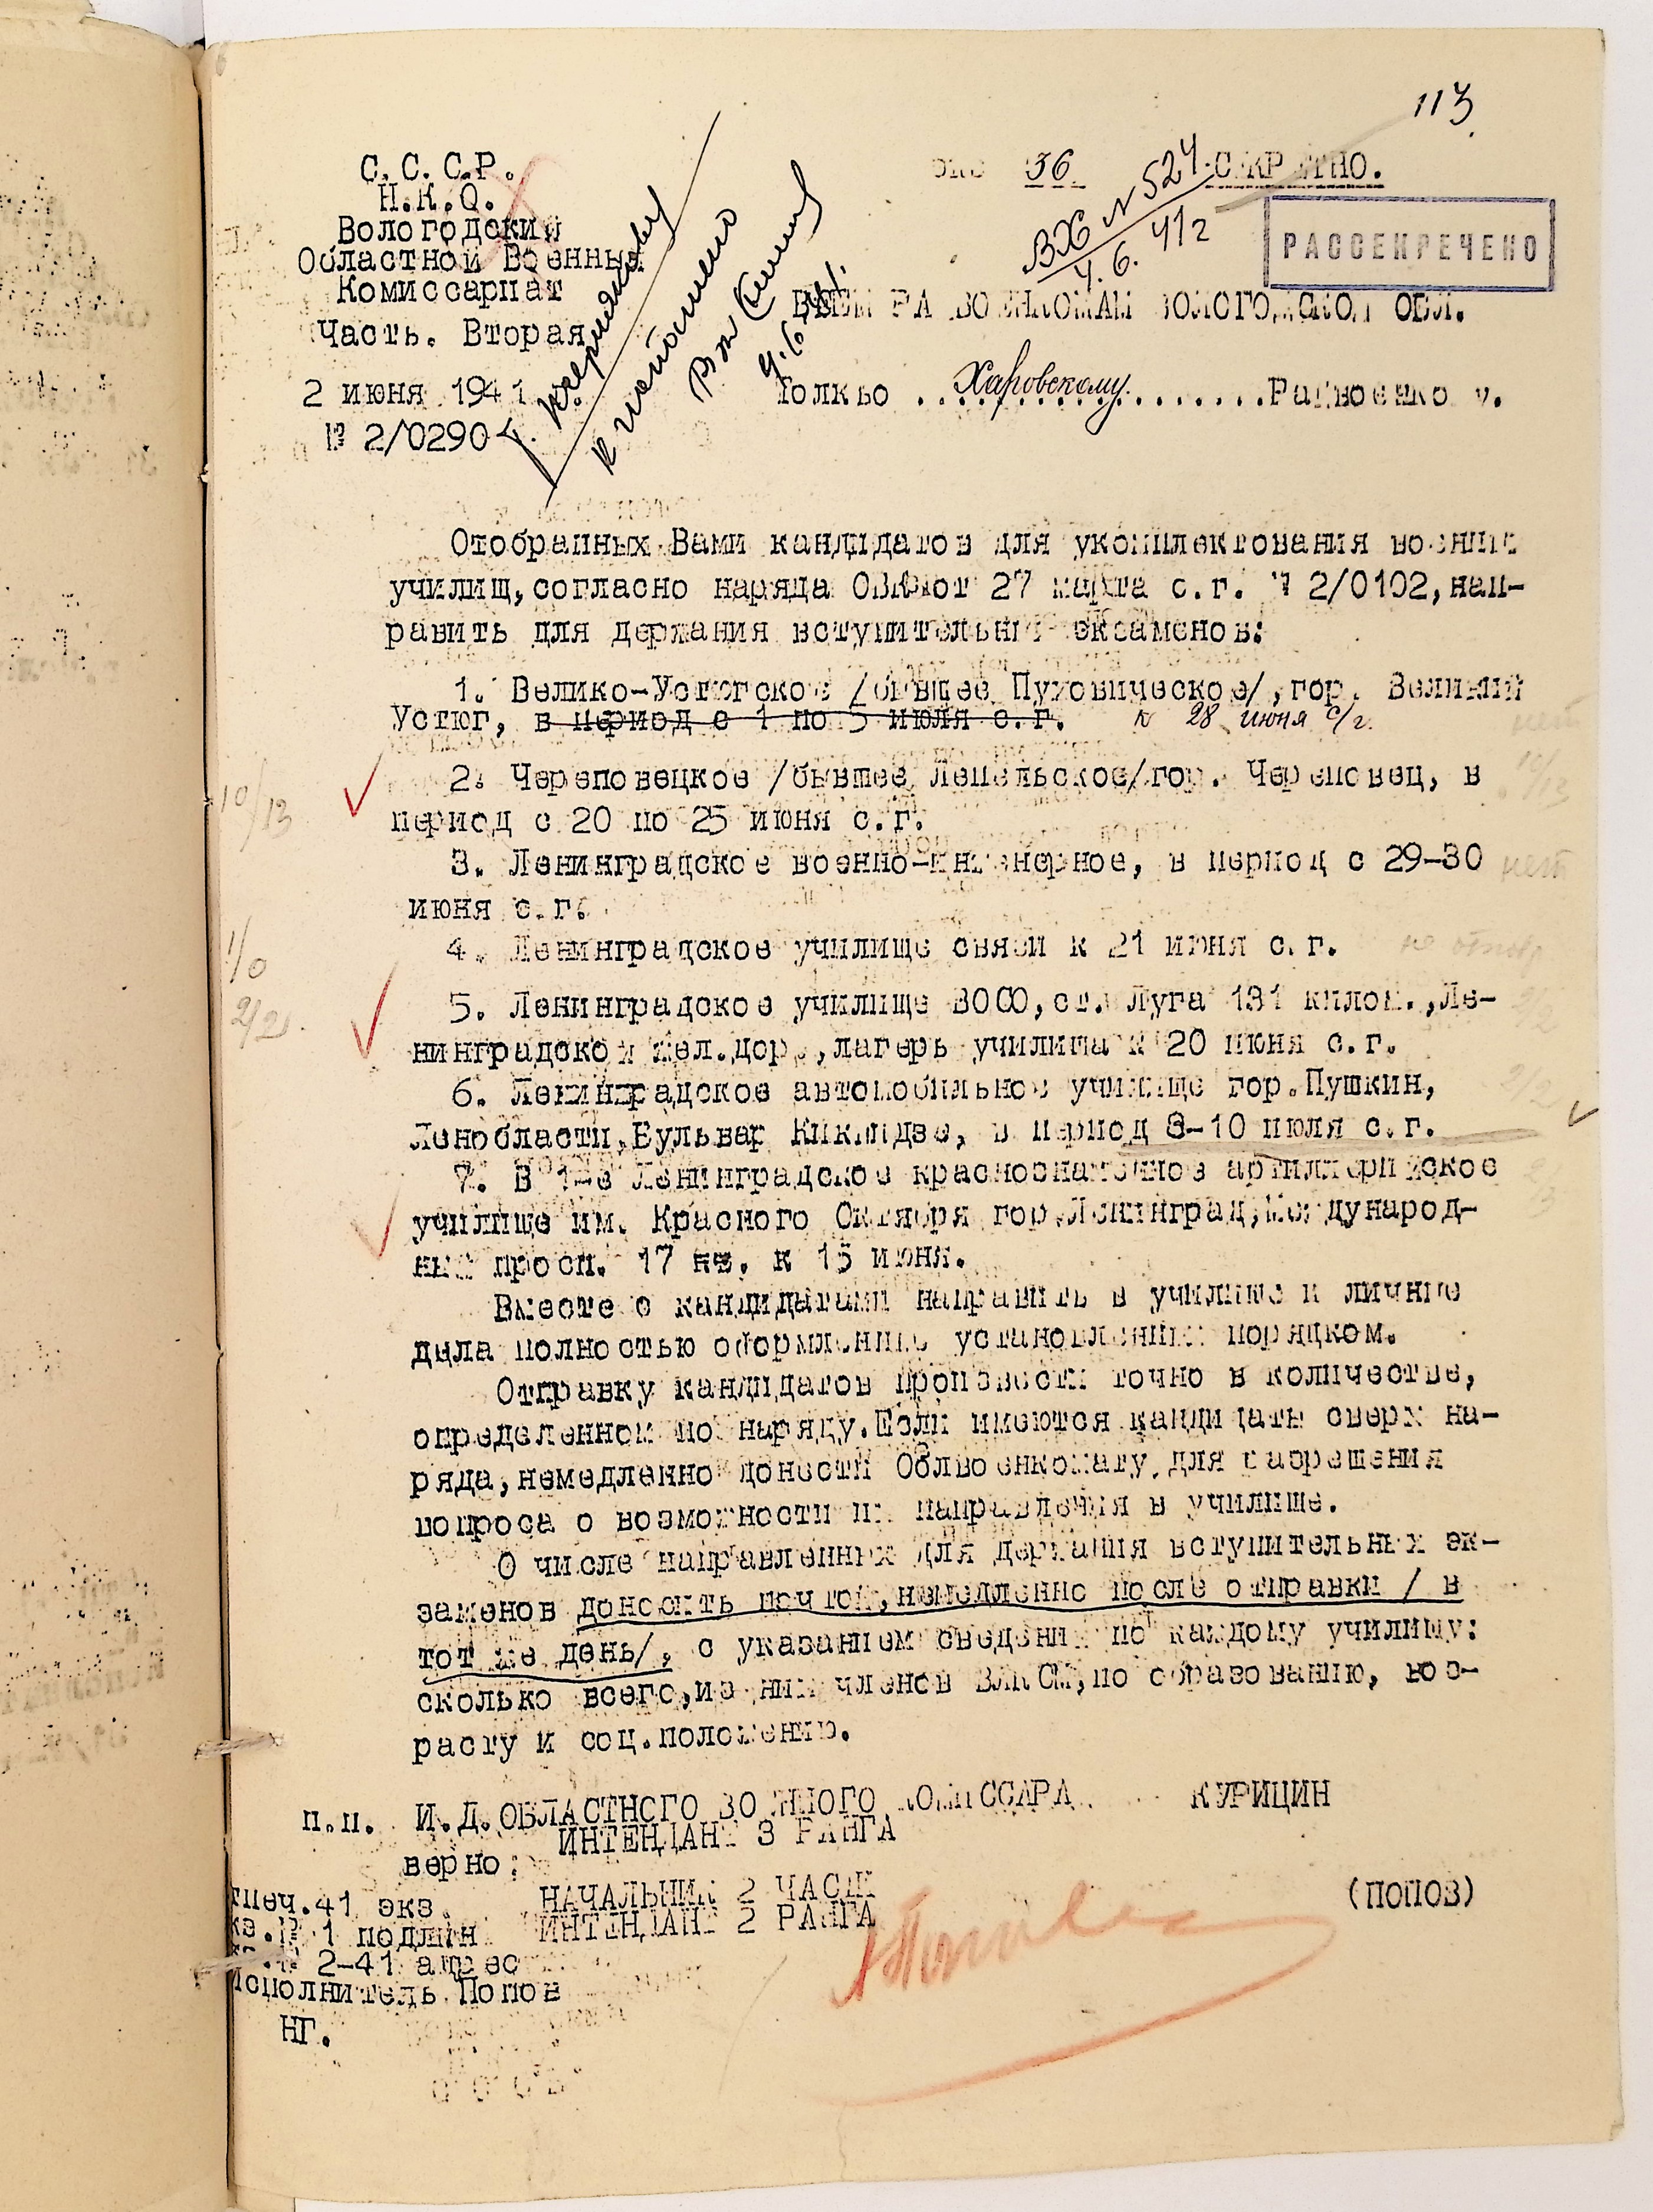 113
С.С.С.Р.
Н.К.О.
Вологодский
Областной Военный
Комиссариат
Часть. Вторая
2 июня 1941
№ 2/0290
экз 36 СЕКРЕТНО.
ВХ N 524
4.6.41г
РАССЕКРЕЧЕНО
ВСЕМ РАЙВОЕНКОМАМ ВОЛОГОДСКОЙ ОБЛ.
Толкьо ..Харовскому..Райвоенкому.
к исполнению
4.6.41.
Отобранных Вами кандидатов для укомплектования военных
училищ, согласно наряда ОВК от 27 марта с.г. № 2/0102, нап-
равить для держания вступительных экзаменов:
1. Велико-Устюгское /бывшее Пуховическое/, гор. Великий
Устюг, в период с 1 по 5 июля с.г. к 28 июня с/г.
нет
2. Череповецкое /бывшее Лепельское/гор. Череповец, в
период с 20 по 25 июня с.г.
10/13
10/13
3. Ленинградское военно-инженерное, в период с 29-30
июня с.г.
нет
4. Ленинградское училище связи к 21 июня с.г.
1/0
2/2
5. Ленинградское училище ВОСО, ст. Луга 131 килом., Ле-
нинградской жел.дор., лагерь училища к 20 июня с.г.
6. Ленинградское автомобильное училище гор.Пушкин,
Ленобласти, Бульвар Киквидзе, в период 8-10 июля с.г.
2/2
7. В 1-е Ленинградское краснознаменное артиллерийское
училище им. Красного Октября гор.Ленинград, Международ-
ный просп. 17 кв. к 15 июня.
Вместе с кандидатами направить в училище и личные
дела полностью оформленные установленным порядком.
Отправку кандидатов произвести точно в количестве,
определенном по наряду. Если имеются кандидаты сверх на-
ряда, немедленно донести Облвоенкомату, для разрешения
вопроса о возможности их направления в училище.
О числе направленных для держания вступительных эк-
заменов доносить почтой, немедленно после отправки / в
тот же день/, с указанием сведений по каждому училищу:
сколько всего, из них членов ВЛКСМ, по образованию, воз-
расту и соц.положению.
п.п. И.Д.ОБЛАСТНОГО ВОЕННОГО КОМИССАРА КУРИЦИН
ИНТЕНДАНТ 3 РАНГА
верно:
НАЧАЛЬНИК 2 ЧАСТИ
ИНТЕНДАНТ 2 РАНГА (ПОПОВ)
тпеч.41 экз.
кз.№ 1 подлин
2-41 адрес
Исполнитель Попов
НГ.